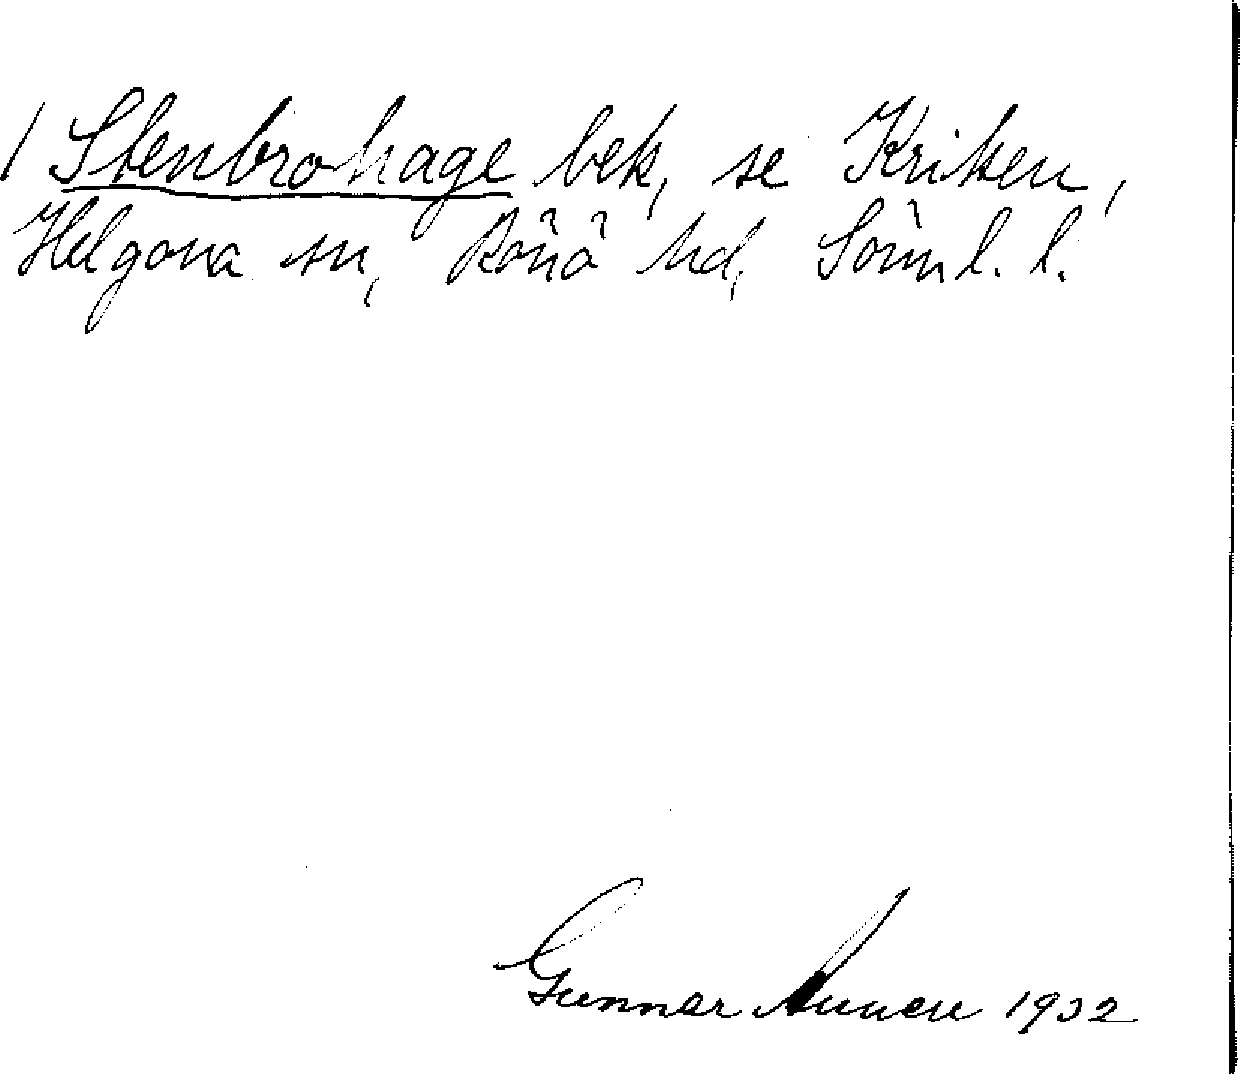 / Stenbrohage bek, se Kriken,
Helgona sn, Rönö hd, Sörml. l.
Gunnar 1932